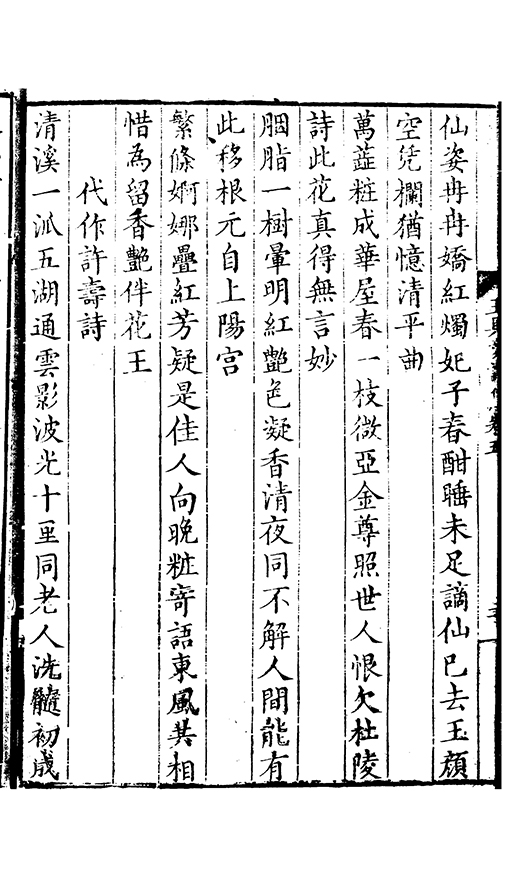 仙姿冉冉嬌紅燭妃子春酣睡未足謫仙已去玉顏
空凭欄猶憶清平曲
萬蕋粧成華屋春一枝微亞金尊照世人恨欠杜陵
詩此花真得無言妙
胭脂一樹暈明紅艷色凝香清夜同不解人間能有
此移根元自上陽宮
繁條婀娜疊紅芳疑是佳人向晚粧寄語東風莫相
惜為留香艷伴花王
代作許壽詩
清溪一派五湖通雲影波光十里同老人洗髓初成